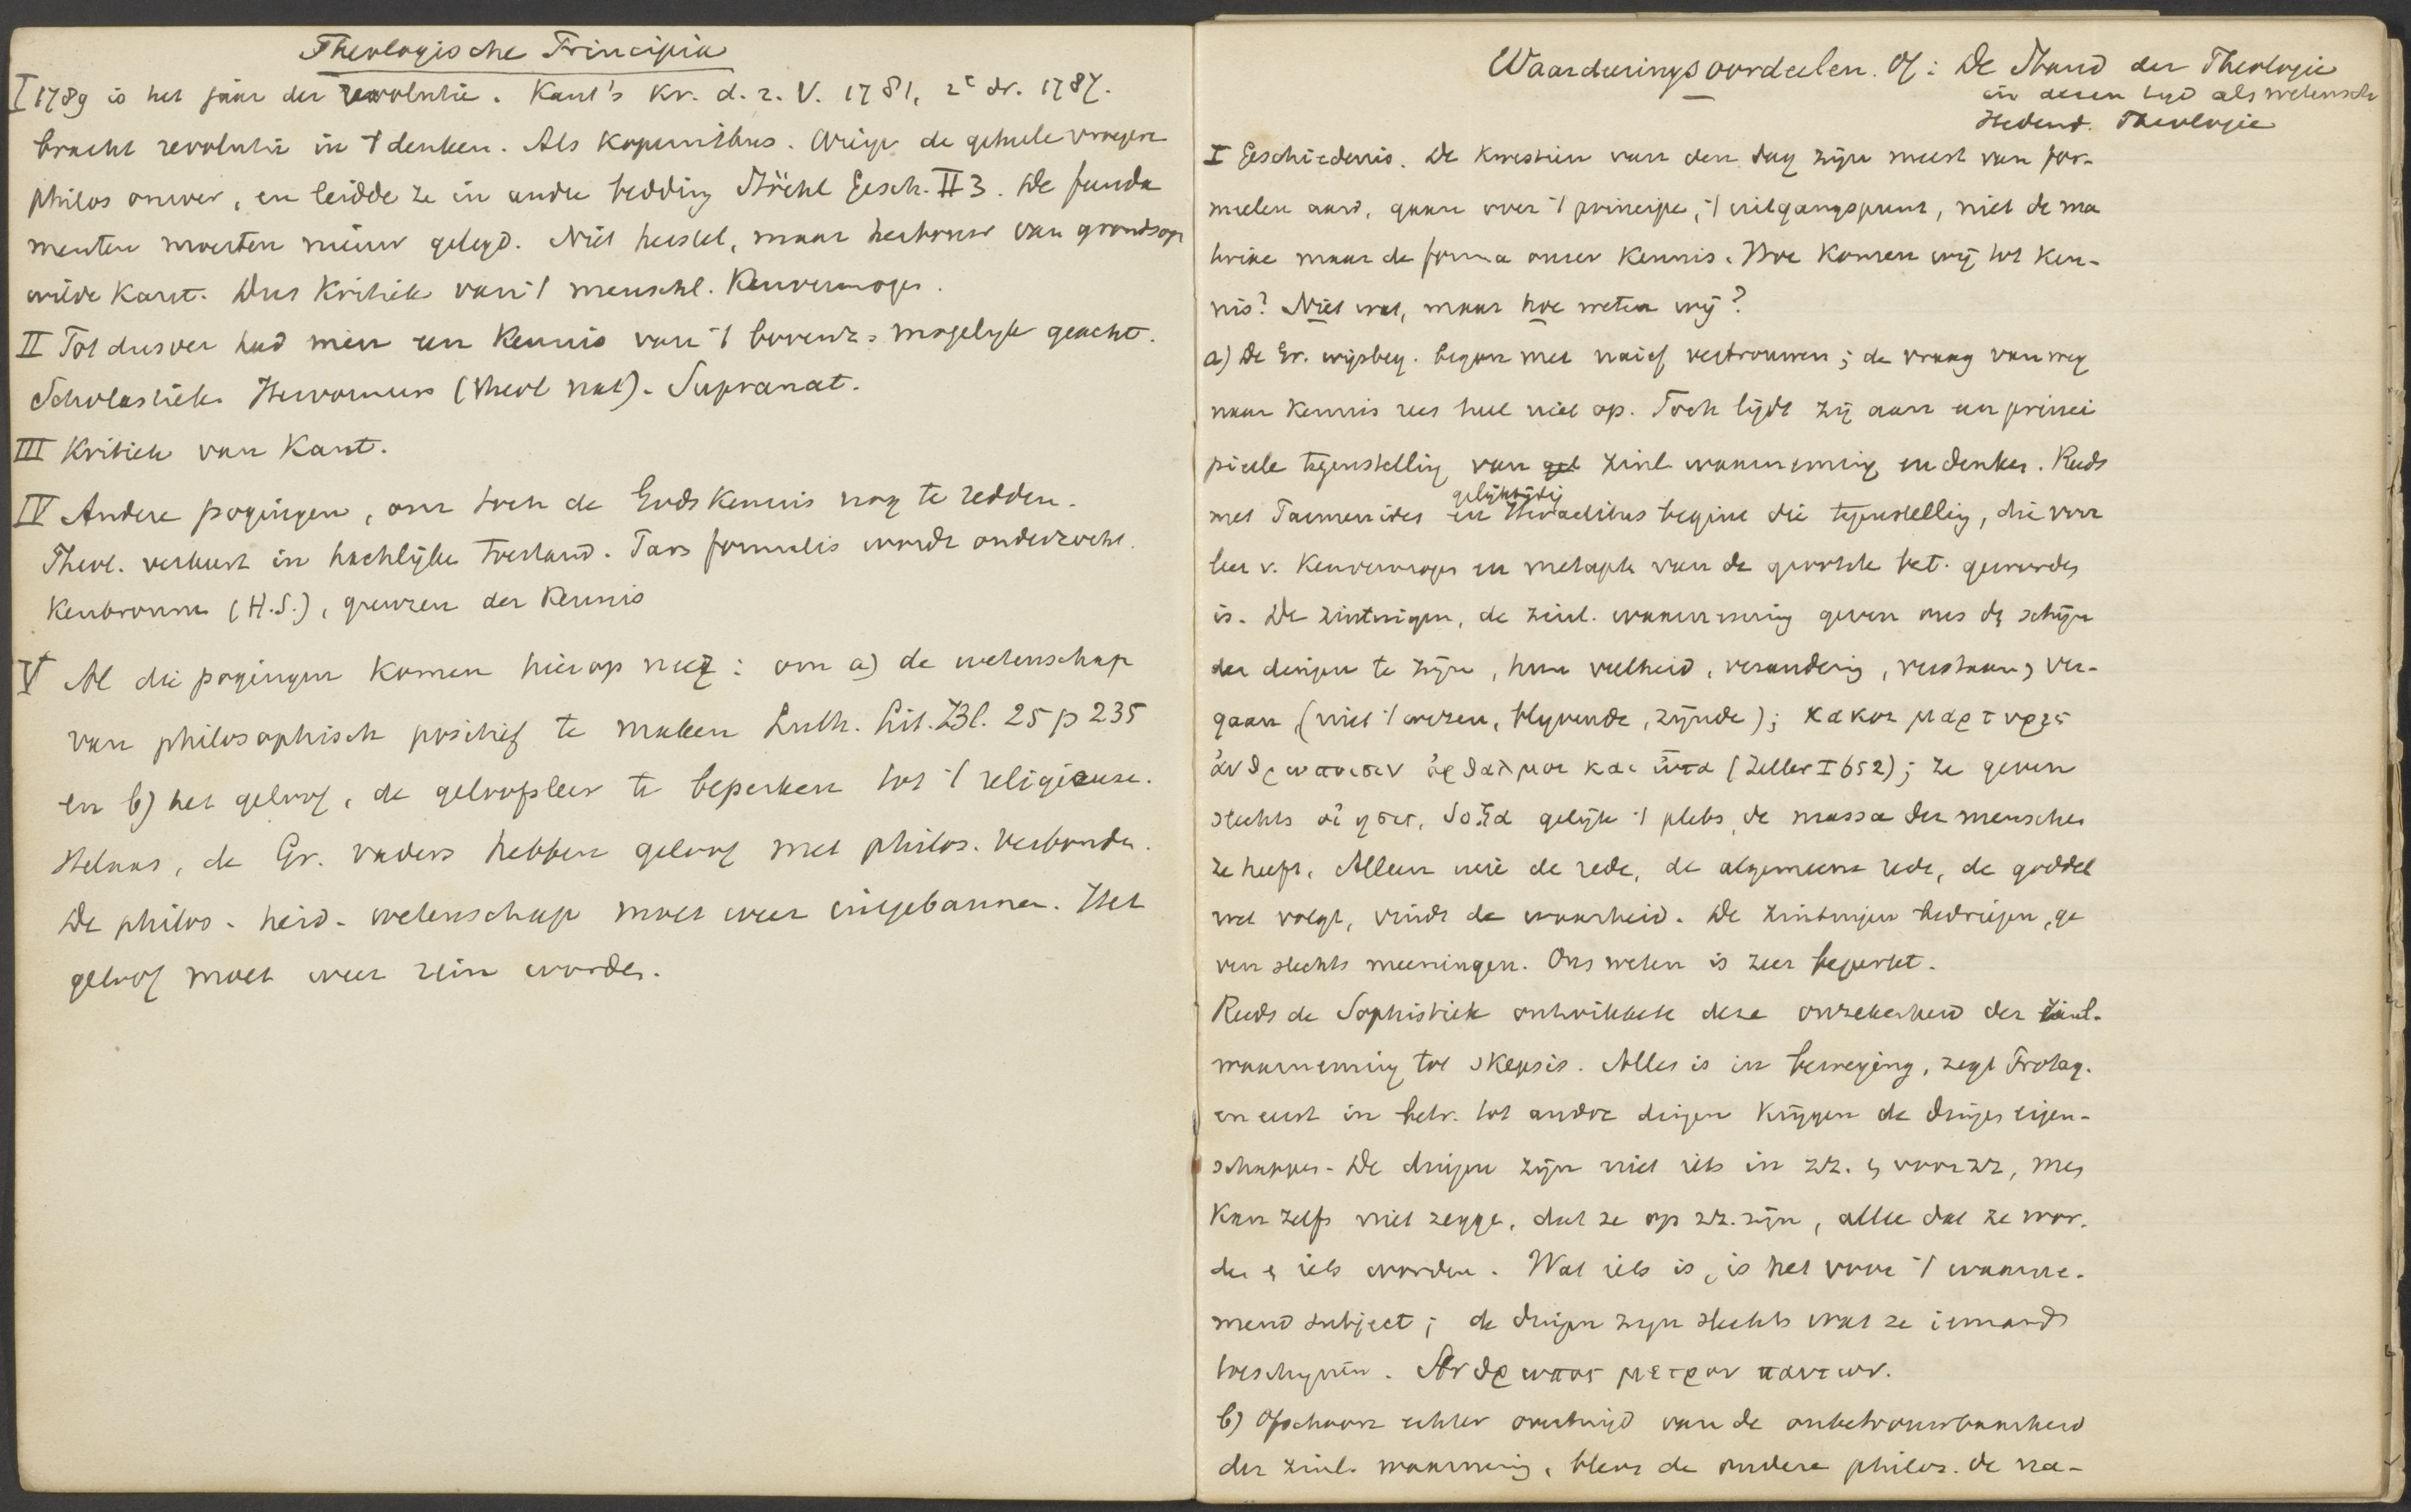 Theologische Principia
I 1789 is het jaar der revolutie. Kant's Kr. d. r. V. 1781, 2e dr. 1787.
bracht revolutie in 't denken. Als Kopernikus. Wierp de geheele vroegere
philos omver, en leidde ze in andere bedding Stöckl Gesch. II 3. De funda
menten moesten nieuw gelegd. Niet herstel, maar herbouw van grondsop
wilde Kant. Dus Kritiek van 't menschl. Kenvermogen.
II Tot dusver had men een Kennis van 't bovenz. mogelijk geacht.
Scholastiek Hervormers (theol nat). Supranat.
III Kritiek van Kant.
IV Andere pogingen, om toch de Godskennis nog te redden.
Theol. verkeert in hachlijke toestand. Pars formalis wordt onderzocht.
Kenbronnen (H.S.), grenzen der Kennis
V Al die pogingen komen hierop neer: om a) de wetenschap
van philosophisch positief te maken Luth. Lit. Bl. 25 p 235
en b) het geloof, de geloofsleer te beperken tot 't religieuse.
Helaas, de Gr. vaders hebben geloof met philos. verbonden.
De philos. heid. wetenschap moet weer uitgebannen. Het
geloof moet weer rein worden.
Waardeeringsoordeelen. Of: De Stand der Theologie
in dezen tyd als wetensch
Hedend. Theologie
I Geschiedenis. De kwestiën van den dag zijn meest van for-
meelen aard, gaan over 't principe, 't uitgangspunt, niet de ma
terie maar de forma onzer Kennis. Hoe Komen wij tot Ken-
nis? Niet wat, maar hoe weten wij?
a) De Gr. wijsbeg. begon met naief vertrouwen; de vraag van weg
naar Kennis rees heel niet op. Toch lijdt zij aan een princi
pieele tegenstelling van zinl waarneming en denken. Reeds
met Parmenides en gelijktijdig Heraclitus begint die tegenstelling, die voor
leer v. Kenvermogen en metaph van de grootste bet. geworden
is. De zintuigen, de zinl. waarneming geven ons den schijn
der dingen te zijn, hun veelheid, verandering, ontstaan, ver-
gaan, (niet 't wezen, blyvende, zijnde); κακοι μαρτυρες
ἀνθρωποισιν ὀφθαλμοι και ὠτα (Zeller I 652); ze geven
slechts οἰησις, δοξα gelijk 't plebs, de massa der menschen
ze heeft. Alleen wie de rede, de algemeene rede, de goddel
wet volgt, vindt de waarheid. De zintuigen bedriegen, ge
ven slechts meeningen. Ons weten is zeer beperkt.
Reeds de Sophistiek ontwikkelt deze onzekerheid der zinl.
waarneming tot skepsis. Alles is in beweging, zegt Protag.
en eerst in betr. tot andre dingen krijgen de dingen eigen-
schappen. De dingen zijn niet iets in zz. en voor zz, men
kan zelfs niet zeggen, dat ze op zz. zijn, alleen dat ze wor.
den en iets worden. Wat iets is, is het voor 't waarne-
mend subject; de dingen zijn slechts wat ze iemand
toeschynen. Ανθρωπος μετρον παντων.
b) Ofschoon echter overtuigd van de onbetrouwbaarheid
der zinl. waarneming, bleef de oudere philos. de na-